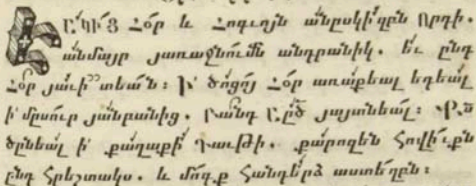 ԷԱԿԻՑ Հօր և Հոգւոյն անըսկիզբն Որդի,
անմայր յառաջնումն անդրանիկ. Եւ ընդ
Հօր յաւիտեան։ Ի ծոցոյ Հօր առաքեալ եղեալ
ի մըսուր յանբանից. Բանդ Ած յայտնեալ։ Քս
ծընեալ ի քաղաքի Դաւթի. քարոզեն Հովիւքն
ընդ Հրեշտակս. և մոգք Հանդերձ աստեղբն։